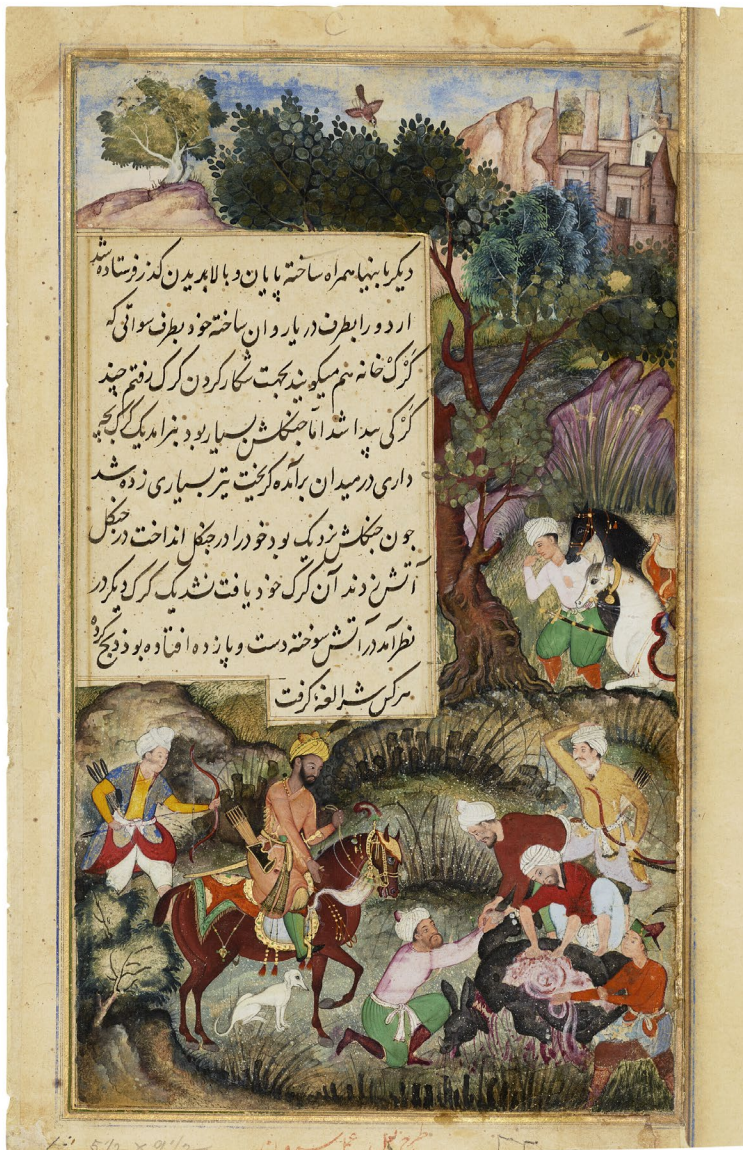 دیکر با بنها همراه ساخته پایان و بالا بدیدن کذر فرستاده شد
اردو را بطرف دریا روان ساخته خود بطرف سواتی که
کرک خانه هم میکویند بجهت شکار کردن کرک رفتم چند
کرکی پیدا شد اما جنکلش بسیار بود بنرامد یک کرک بچه
داری در میدان برآمده کریخت تیر بسیاری زده شد
چون جنکلش نزدیک بود خود را در جنکل انداخت در جنکل
آتش زدند آن کرک خود یافت نشد یک کرک دیکر در
نظر آمد در آتش سوخته دست و پا زده افتاده بود ذبح کرده
هر کس شرالغه کرفت
5 1/2 x 9 1/2
طرح عمل